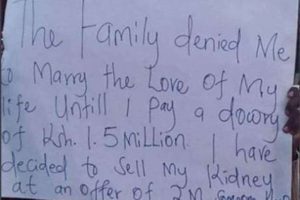 The Family denied Me
to Marry the Love of My
life Untill I Pay a dowry
of Ksh. 1.5 Million I have
decided to Sell My Kidney
at an offer of 2M